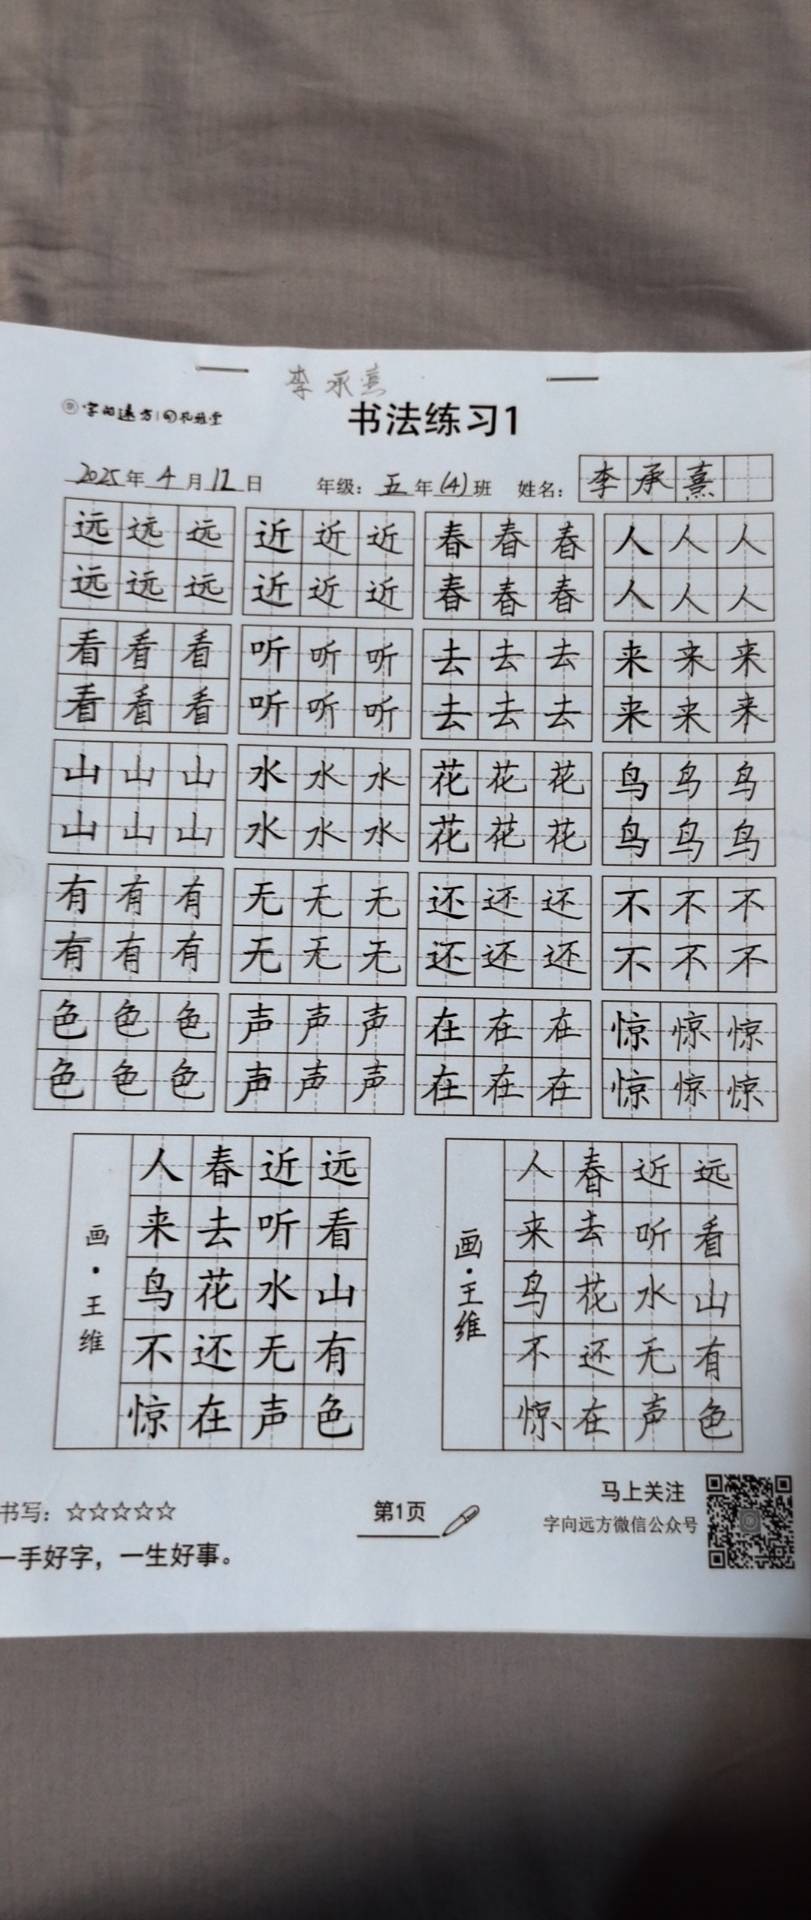 李承熹
字向远方
书法练习1
2025年4月12日 年级：五年(4)班 姓名：李承熹
远远远 近近近 春春春 人人人
远远远 近近近 春春春 人人人
看看看 听听听 去去去 来来来
看看看 听听听 去去去 来来来
山山山 水水水 花花花 鸟鸟鸟
山山山 水水水 花花花 鸟鸟鸟
有有有 无无无 还还还 不不不
有有有 无无无 还还还 不不不
色色色 声声声 在在在 惊惊惊
色色色 声声声 在在在 惊惊惊
远看山有色
近听水无声
春去花还在
人来鸟不惊
画·王维
远看山有色
近听水无声
春去花还在
人来鸟不惊
画·王维
书写：☆☆☆☆☆
一手好字，一生好事。
第1页
马上关注
字向远方微信公众号